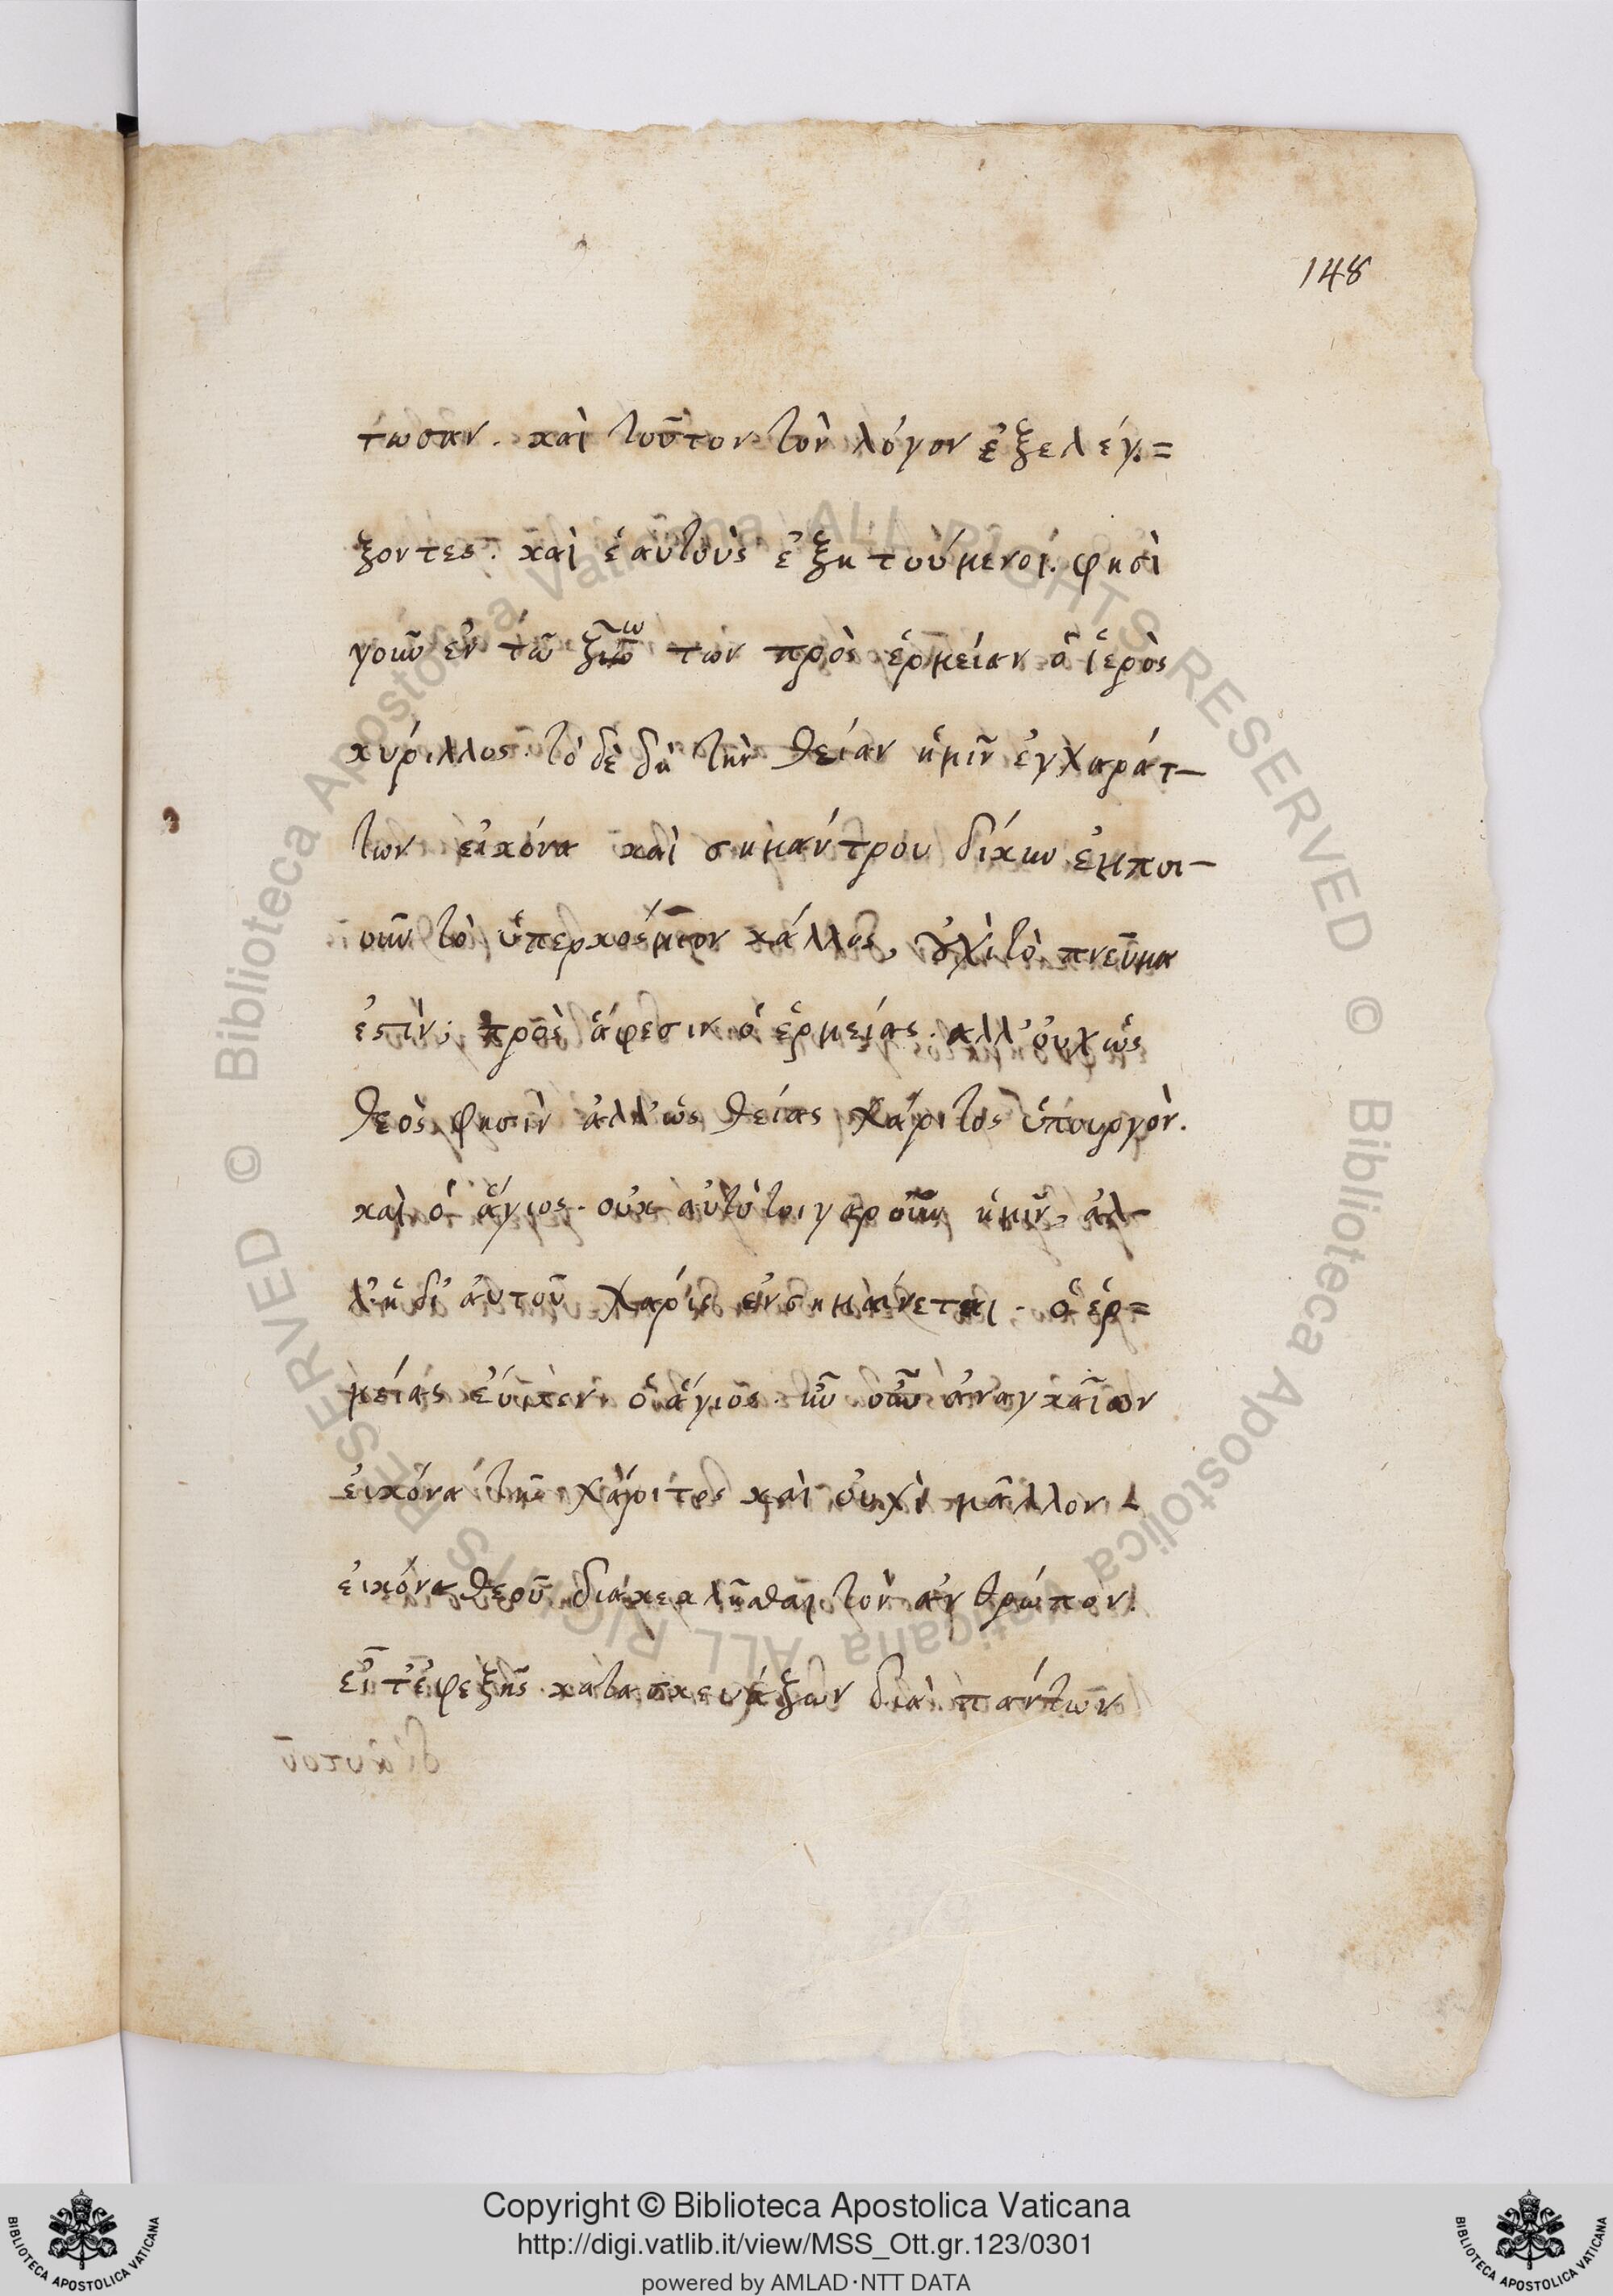 148
τωσαν. καὶ τοῦτον τὸν λόγον ἐξελέγ=
ξοντες. καὶ ἑαυτοὺς ἐξητούμενοι. φησὶ
γοῦν ἐν τῶ ζω τῶν πρὸς ἑρμείαν ὁ ἱερὸς
κύριλλος. τὸ δὲ δὴ τὴν θείαν ἡμῖν ἐγχαράτ-
των εἰκόνα καὶ σημάντρου δίκην ἐμποι-
οῦν τὸ ὑπερκόσμιον κάλλος, οὐχὶ τὸ πνεῦμα
ἐστὶν; πρὸς ἄφεσιν ὁ ἑρμείας. αλλ' οὐχ ὡς
θεὸς φησὶν ἀλλ' ὡς θείας χάριτος ὑπουργὸν.
καὶ ὁ ἅγιος. οὐκ αὐτὸ τοιγαροῦν ἡμῖν, ἀλ-
λ' ἡ δι' αὐτοῦ χάρις ἐνσημαίνεται. ὁ ἑρ=
μείας ὁ ἅγιος. ἦν οὖν ἀναγκαῖον
εἰκόνα τῆς χάριτος καὶ οὐχὶ μᾶλλον
εἰκόνα θεοῦ διακεκλῆσθαι τὸν ἄνθρωπον.
εἶτ' ἐφεξῆς κατασκευάζων διὰ πάντων
Copyright © Biblioteca Apostolica Vaticana
http://digi.vatlib.it/view/MSS_Ott.gr.123/0301
powered by AMLAD·NTT DATA
BIBLIOTECA APOSTOLICA VATICANA
BIBLIOTECA APOSTOLICA VATICANA
© Biblioteca Apostolica Vaticana ALL RIGHTS RESERVED © Biblioteca Apostolica Vaticana ALL RIGHTS RESERVED